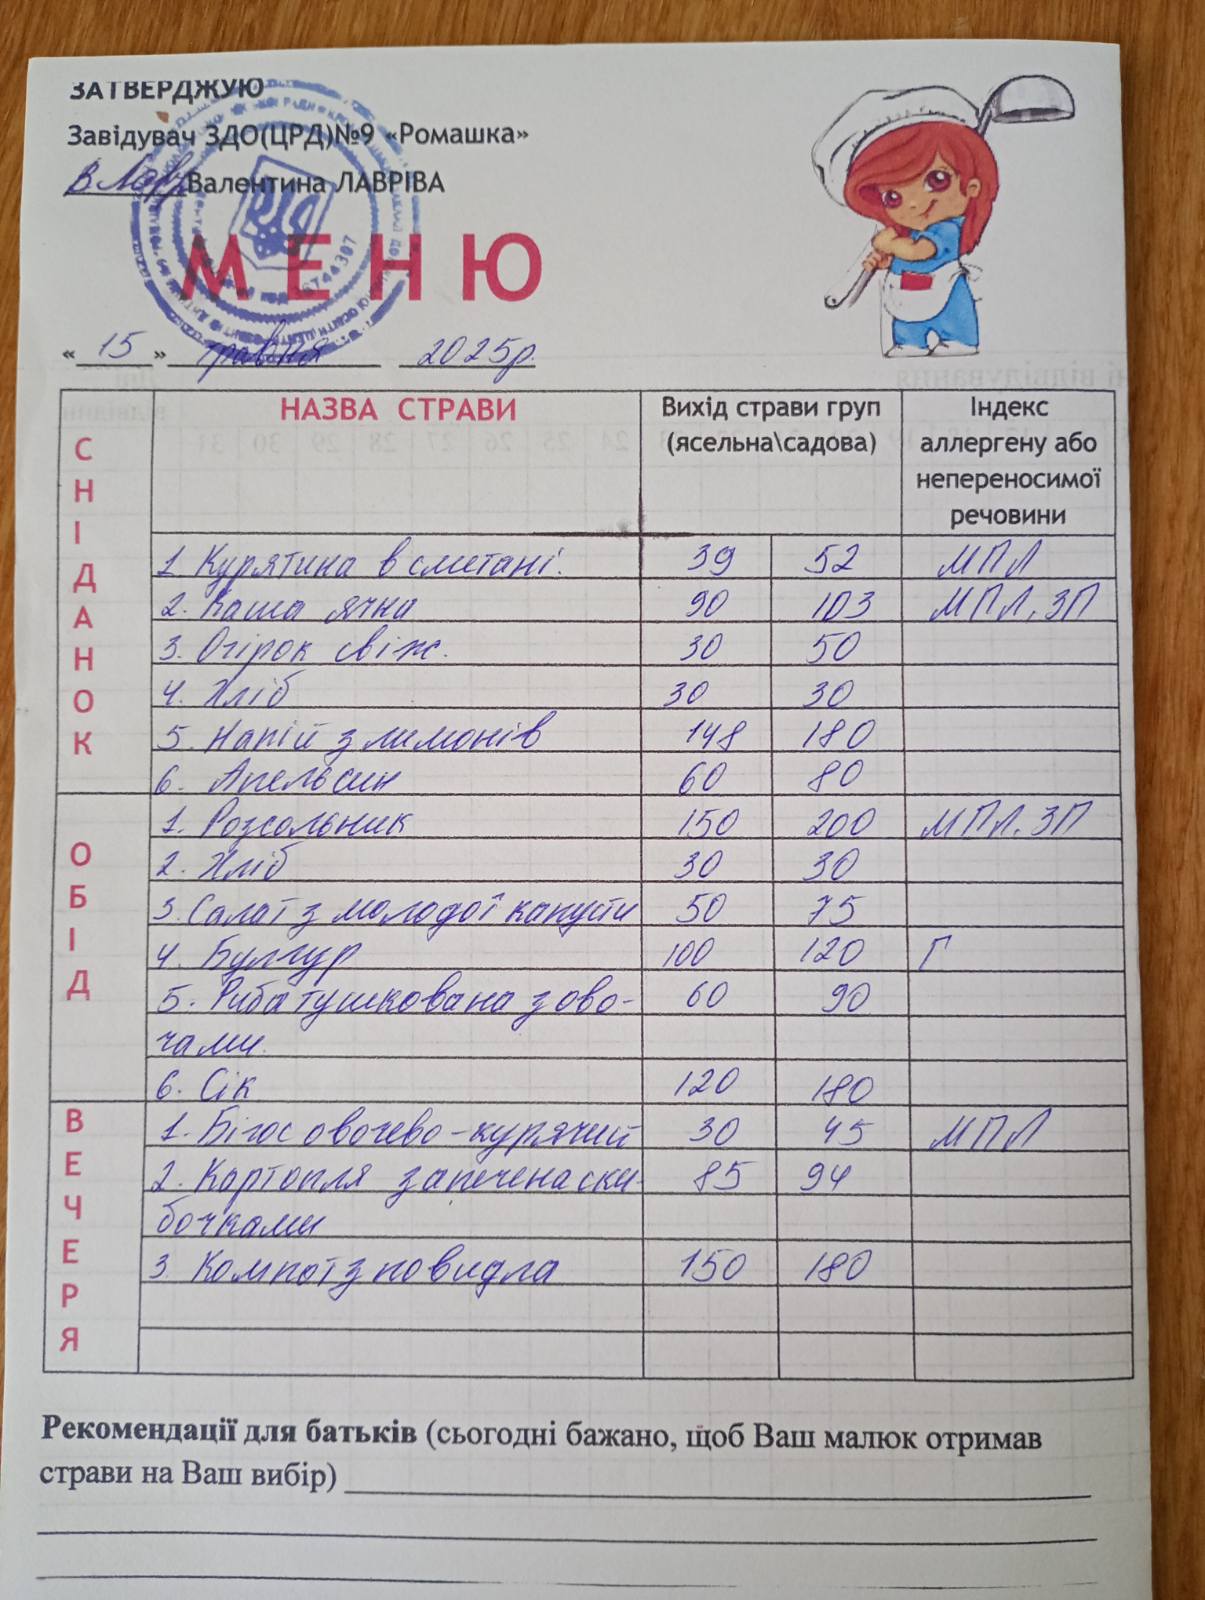 ЗАТВЕРДЖУЮ
Завідувач ЗДО(ЦРД)№9 «Ромашка»
Валентина ЛАВРІВА
МЕНЮ
« 15 » травня 2025р.
СНІДАНОК
НАЗВА СТРАВИ
Вихід страви груп
(ясельна\садова)
Індекс
аллергену або
непереносимої
речовини
1. Курятина в сметані. 39 52 МПЛ
2. Каша ячна 90 103 МПЛ, ЗП
3. Огірок свіж. 30 50
4. Хліб 30 30
5. Напій з лимонів 148 180
6. Апельсин 60 80
ОБІД
1. Розсольник 150 200 МПЛ. ЗП
2. Хліб 30 30
3. Салат з молодої капусти 50 75
4. Булгур 100 120 Г
5. Риба тушкована з ово- 60 90
чами.
6. Сік 120 180
ВЕЧЕРЯ
1. Бігос овочево-курячий 30 45 МПЛ
2. Картопля запечена ски- 85 94
бочками
3. Компот з повидла 150 180
Рекомендації для батьків (сьогодні бажано, щоб Ваш малюк отримав
страви на Ваш вибір)